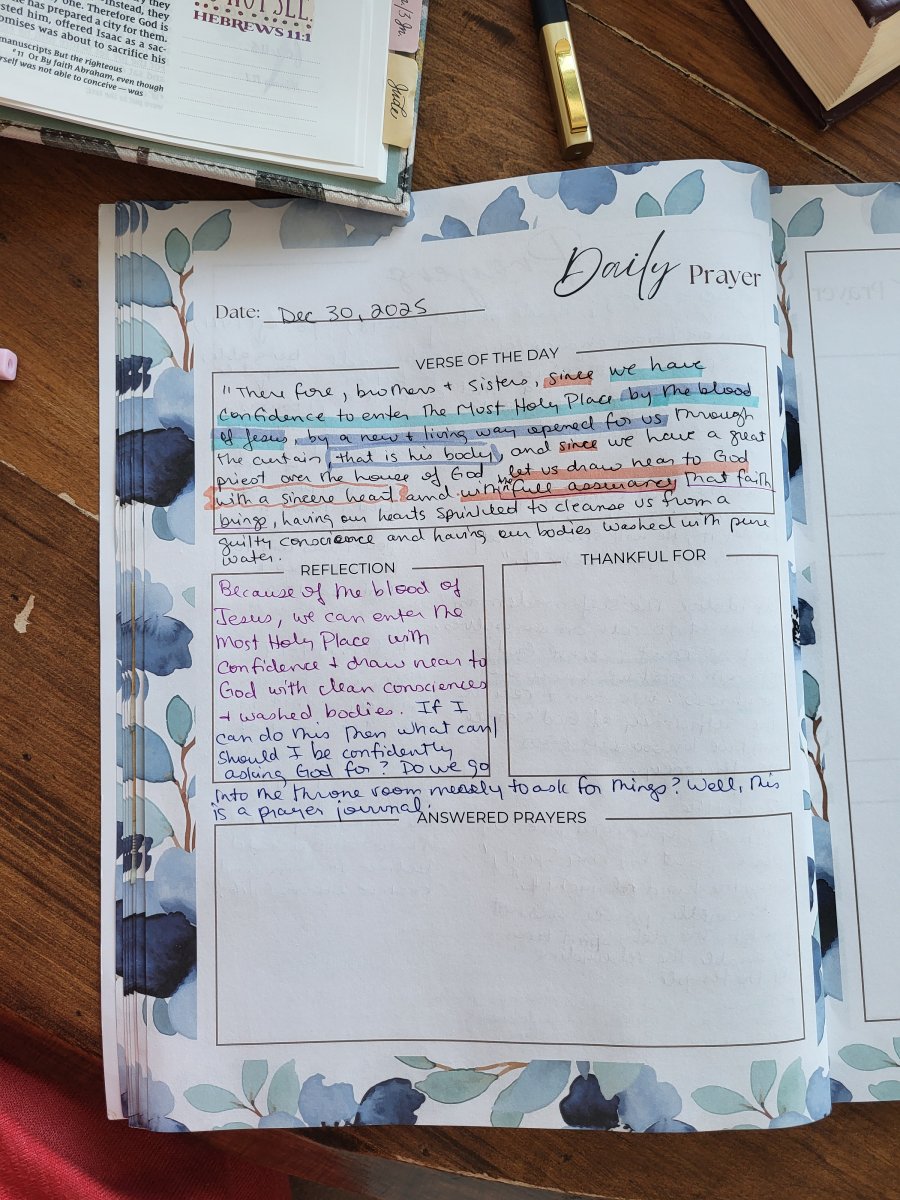 NOT SEE.
HEBREWS 11:1
one. Therefore God is
has prepared a city for them.
sted him, offered Isaac as a sac-
omises was about to sacrifice his
manuscripts But the righteous
11 Or By faith Abraham, even though
rself was not able to conceive — was
Jude
Daily Prayer
Date: Dec 30, 2025
VERSE OF THE DAY
"There fore, brothers + sisters, since we have
confidence to enter the Most Holy Place by the blood
of Jesus, by a new + living way opened for us through
the curtain, that is his body, and since we have a great
priest over the house of God, let us draw near to God
with a sincere heart and with the full assurance that faith
brings, having our hearts sprinkled to cleanse us from a
guilty conscience and having our bodies washed with pure
water.
REFLECTION
Because of the blood of
Jesus, we can enter the
Most Holy Place with
confidence + draw near to
God with clean consciences
+ washed bodies. If I
can do this then what can/
should I be confidently
asking God for? Do we go
into the throne room merely to ask for things? Well, this
is a prayer journal.
THANKFUL FOR
ANSWERED PRAYERS